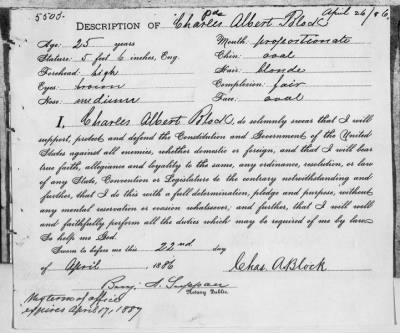 5503.
April 26/86
DESCRIPTION OF Charles Albert Block
Age: 25 years
Mouth: proportionate
Stature: 5 feet 6 inches, Eng.
Chin: oval
Forehead: high
Hair: blonde
Eyes: brown
Complexion: fair
Nose: medium
Face: oval
I, Charles Albert Block, do solemnly swear that I will
support, protect and defend the Constitution and Government of the United
States against all enemies, whether domestic or foreign, and that I will bear
true faith, allegiance and loyalty to the same, any ordinance, resolution, or law
of any State, Convention or Legislature to the contrary notwithstanding and
further, that I do this with a full determination, pledge and purpose, without
any mental reservation or evasion whatsoever; and further, that I will well
and faithfully perform all the duties which may be required of me by law.
So help me God.
Sworn to before me this 22nd day
of April, 1886
Chas. A. Block
Notary Public.
My term of office
expires April 07, 1887